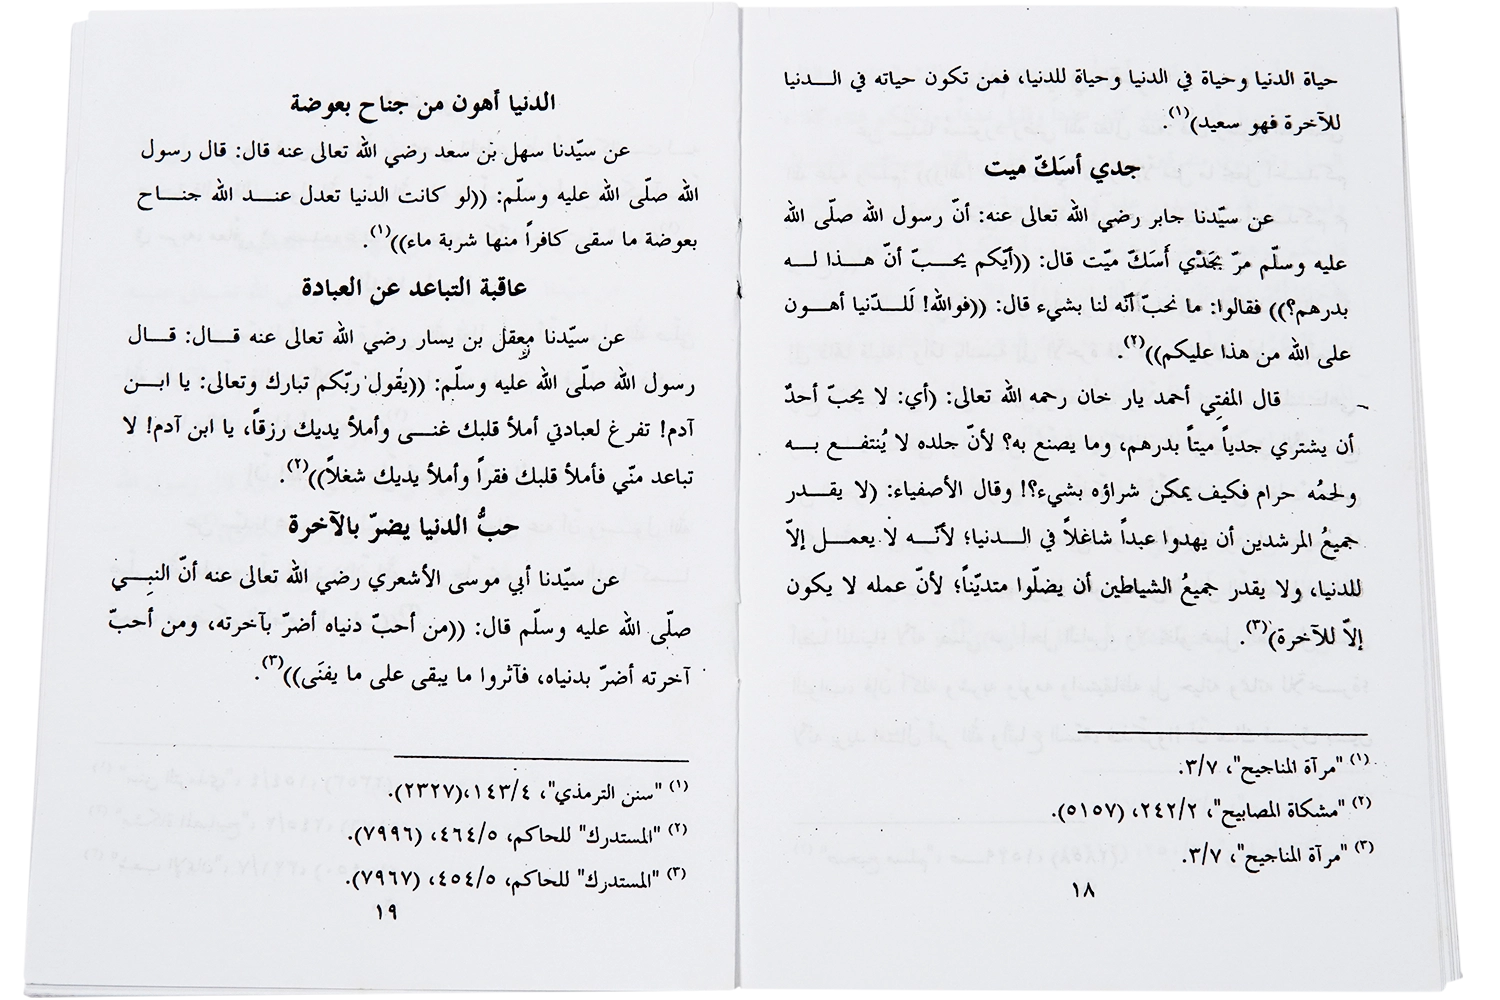 حياة الدنيا وحياة في الدنيا وحياة للدنيا، فمن تكون حياته في الـــدنيا
للآخرة فهو سعيد)(١).
جدي أسَكّ ميت
عن سيّدنا جابر رضي الله تعالى عنه: أنّ رسول الله صلّى الله
عليه وسلّم مرّ بجَدْي أَسَكّ ميّت قال: ((أيّكم يحبّ أنّ هـــذا لـــه
بدرهم؟)) فقالوا: ما نحبّ أنّه لنا بشيء قال: ((فوالله! لَلـــدّنيا أهـــون
على الله من هذا عليكم))(٢).
قال المفتِي أحمد يار خان رحمه الله تعالى: (أي: لا يحبّ أحدٌ
أن يشتري جدياً ميتاً بدرهم، وما يصنع به؟ لأنّ جلده لا يُنتفـــع بـــه
ولحمُه حرام فكيف يمكن شراؤه بشيء؟! وقال الأصفياء: (لا يقـــدر
جميعُ المرشدين أن يهدوا عبداً شاغلاً في الـــدنيا؛ لأنّـــه لا يعمـــل إلاّ
للدنيا، ولا يقدر جميعُ الشياطين أن يضلّوا متديّناً؛ لأنّ عمله لا يكون
إلاّ للآخرة)(٣).
(١) "مرآة المناجيح"، ٣/٧.
(٢) "مشكاة المصابيح"، ٢٤٢/٢، (٥١٥٧).
(٣) "مرآة المناجيح"، ٣/٧.
١٨
الدنيا أهون من جناح بعوضة
عن سيّدنا سهل بن سعد رضي الله تعالى عنه قال: قال رسول
الله صلّى الله عليه وسلّم: ((لو كانت الدنيا تعدل عنـــد الله جنـــاح
بعوضة ما سقى كافراً منها شربة ماء))(١).
عاقبة التباعد عن العبادة
عن سيّدنا معقل بن يسار رضي الله تعالى عنه قـــال: قـــال
رسول الله صلّى الله عليه وسلّم: ((يقول ربّكم تبارك وتعالى: يا ابـــن
آدم! تفرغ لعبادتي أملأ قلبك غنـــى وأملأ يديك رزقاً، يا ابن آدم! لا
تباعد منّي فأملأ قلبك فقراً وأملأ يديك شغلاً))(٢).
حبُّ الدنيا يضرّ بالآخرة
عن سيّدنا أبي موسى الأشعري رضي الله تعالى عنه أنّ النبِـــي
صلّى الله عليه وسلّم قال: ((من أحبّ دنياه أضرّ بآخرته، ومن أحبّ
آخرته أضرّ بدنياه، فآثروا ما يبقى على ما يفنَى))(٣).
(١) "سنن الترمذي"، ١٤٣/٤،(٢٣٢٧).
(٢) "المستدرك" للحاكم، ٤٦٤/٥، (٧٩٩٦).
(٣) "المستدرك" للحاكم، ٤٥٤/٥، (٧٩٦٧).
١٩